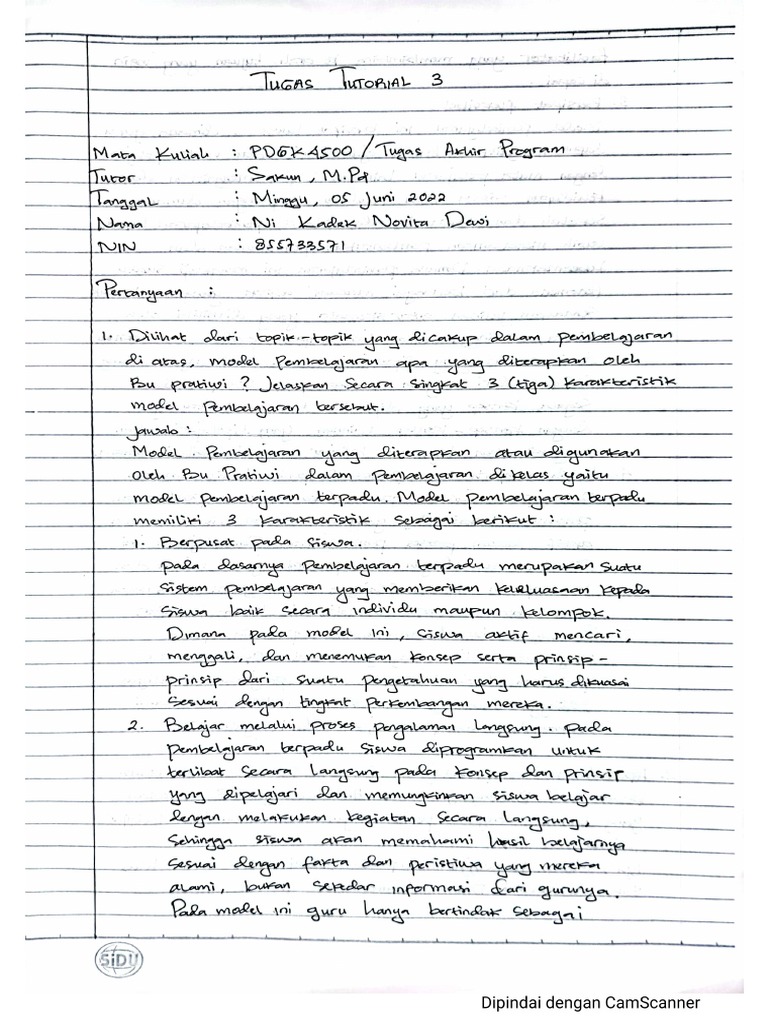 TUGAS TUTORIAL 3
Mata Kuliah : PDGK4500 / Tugas Akhir Program
Tutor : Sakun, M.Pd
Tanggal : Minggu, 05 Juni 2022
Nama : Ni Kadek Novita Dewi
NIN : 855733571
Pertanyaan :
1. Dilihat dari topik-topik yang dicakup dalam pembelajaran
di atas, model Pembelajaran apa yang diterapkan oleh
Bu pratiwi ? Jelaskan Secara Singkat 3 (tiga) Karakteristik
model Pembelajaran tersebut.
Jawab :
Model Pembelajaran yang diterapkan atau digunakan
oleh Bu Pratiwi dalam pembelajaran di kelas yaitu
model pembelajaran terpadu. Model pembelajaran terpadu
memiliki 3 Karakteristik Sebagai berikut :
1. Berpusat pada Siswa.
pada dasarnya pembelajaran terpadu merupakan Suatu
Sistem pembelajaran yang memberikan keleluasaan kepada
Siswa baik secara individu maupun kelompok.
Dimana pada model ini, Siswa aktif mencari,
menggali, dan menemukan konsep serta prinsip-
prinsip dari suatu pengetahuan yang harus dikuasai
Sesuai dengan tingkat perkembangan mereka.
2. Belajar melalui proses pengalaman langsung. pada
pembelajaran terpadu siswa diprogramkan untuk
terlibat Secara Langsung pada Konsep dan prinsip
yang dipelajari dan memungkinkan siswa belajar
dengan melakukan kegiatan Secara Langsung,
Sehingga siswa akan memahami hasil belajarnya
Sesuai dengan fakta dan peristiwa yang mereka
alami, bukan sekedar informasi dari gurunya.
Pada model ini guru hanya bertindak Sebagai
SIDU
Dipindai dengan CamScanner